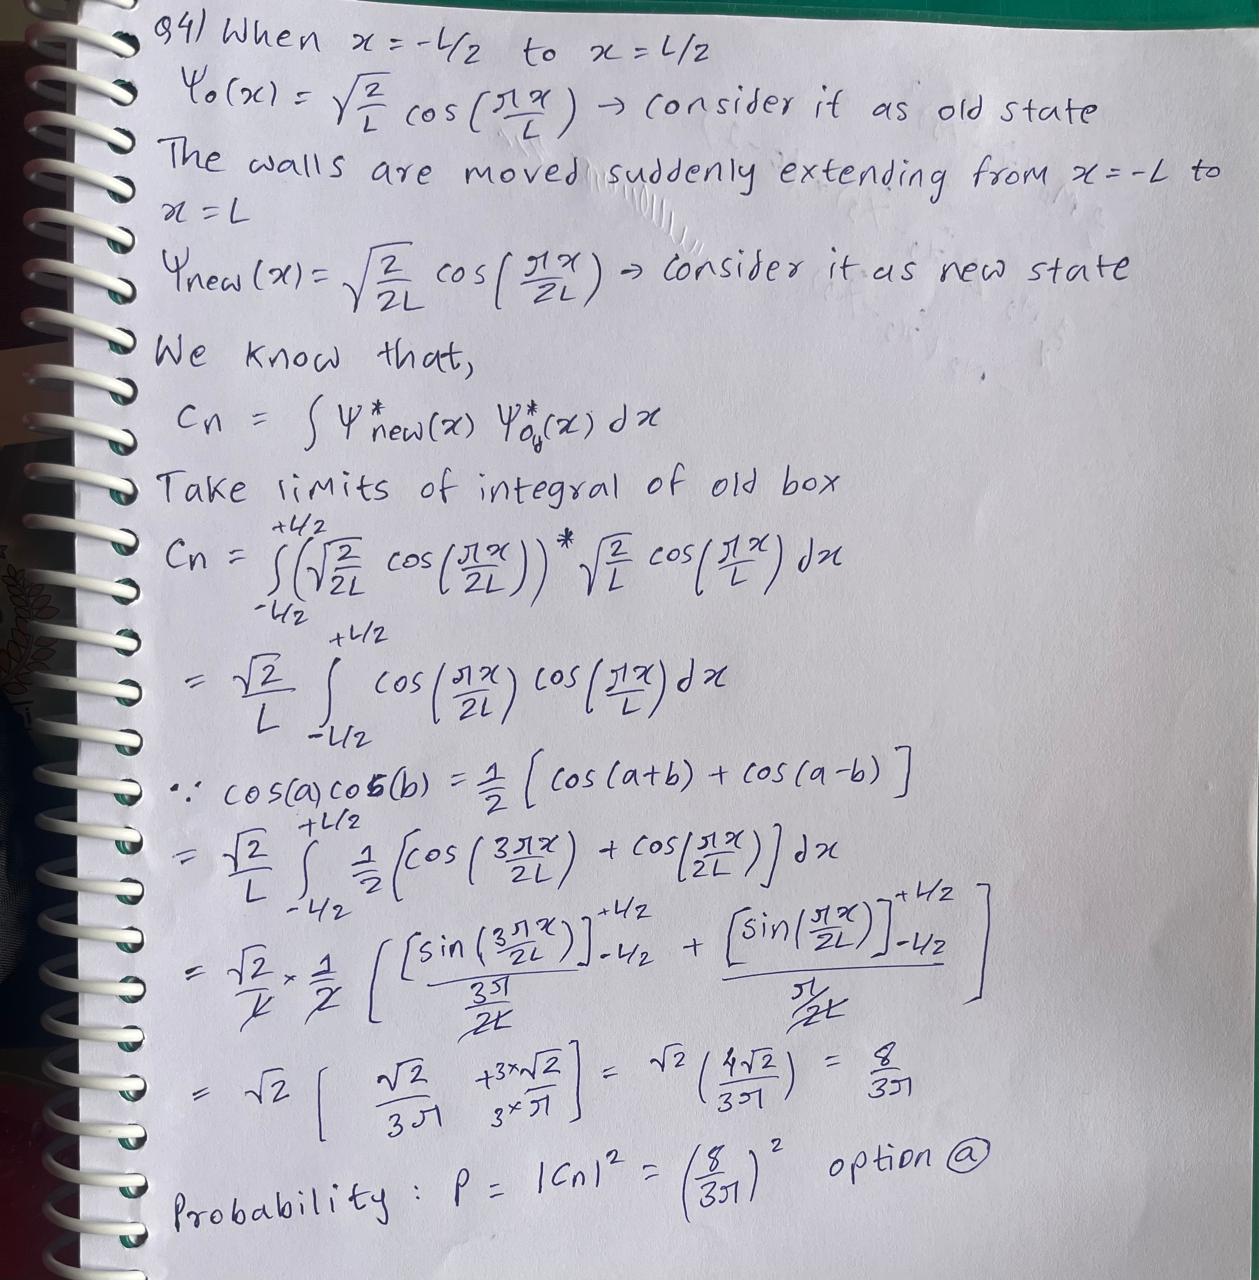 Q4) When x = -L/2 to x = L/2
Ψ₀(x) = √(2/L) cos(πx/L) → consider it as old state
The walls are moved suddenly extending from x = -L to
x = L
Ψnew(x) = √(2/2L) cos(πx/2L) → consider it as new state
We know that,
Cn = ∫ Ψ*new(x) Ψ*₀(x) dx
Take limits of integral of old box
Cn = ∫_{-L/2}^{+L/2} (√(2/2L) cos(πx/2L))* √(2/L) cos(πx/L) dx
= √2/L ∫_{-L/2}^{+L/2} cos(πx/2L) cos(πx/L) dx
∵ cos(a) cos(b) = 1/2 [cos(a+b) + cos(a-b)]
= √2/L ∫_{-L/2}^{+L/2} 1/2 [cos(3πx/2L) + cos(πx/2L)] dx
= √2/L × 1/2 [ [sin(3πx/2L)]_{-L/2}^{+L/2} / (3π/2L) + [sin(πx/2L)]_{-L/2}^{+L/2} / (π/2L) ]
= √2 [ √2/3π + 3×√2/3×π ] = √2 (4√2/3π) = 8/3π
Probability : P = |Cn|² = (8/3π)² option ⓐ